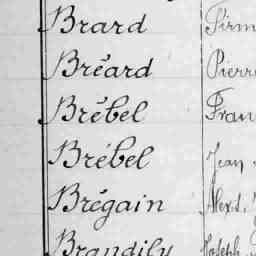 Brard Firm
Bréard Pierre
Brébel Fran
Brébel Jean
Brégain Alexd.
Brandily Joseph